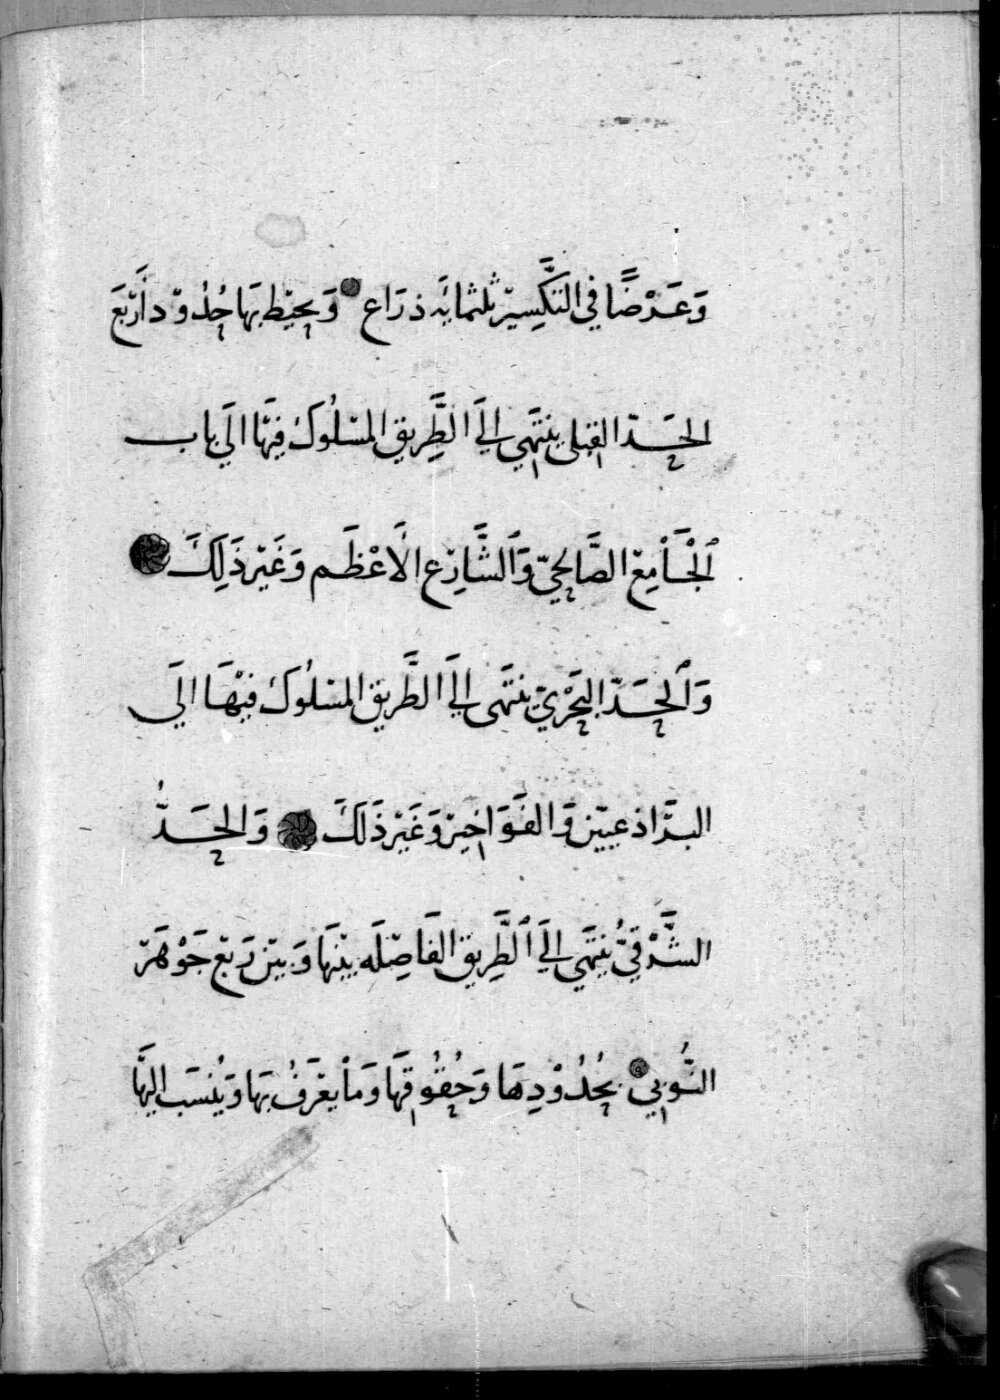 وَعَرْضًا فِي التَّكْسِيْر ثلثمائَه ذرَاع وَيحِيْط بهَا حُدُوْد أَرْبَعَ
الحَدّ القبلى ينتَهَي اِلَي الطَّرِيق المسْلُوك فِيهَا الَي باب
الْجَاْمِعْ الصَّالِحيّ وَالشَّارِع الَاعْظَم وَغَيْر ذَلِكَ
وَالحَدّ البَحْرِيّ ينتَهى اِلَي الطَّرِيق المسْلُوك فِيْهَا الَي
البرَّاذعِيّين وَالفَوَاخِيْر وَغَيْر ذَلَكَ وَالحَدُّ
الشَّرْقيُّ يُنتَهَي اِلَي الطَّرِيق الفَاصِلَه بيْنَهَا وَبيْن رَبْع جَوْهَرْ
النُّوبِي بحُدُوْدِهَا وَحُقُوقهَا وَمَاْ يعْرَفُ بهَا وَيُنسَب اِليْهَا